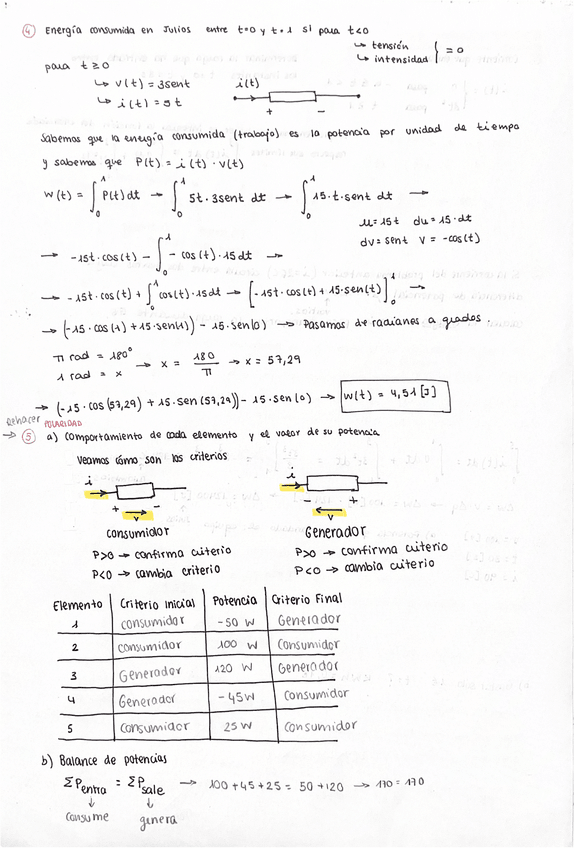 ④ Energía consumida en Julios entre t=0 y t=1 si para t<0
↳ tensión
↳ intensidad } = 0
para t ≥ 0
↳ v(t) = 3sent
↳ i(t) = 5t
i(t)
+ -
Sabemos que la energía consumida (trabajo) es la potencia por unidad de tiempo
y sabemos que P(t) = i(t) · v(t)
W(t) = ∫₀¹ P(t)dt → ∫₀¹ 5t·3sent dt → ∫₀¹ 15·t·sent dt →
u=15t du=15·dt
dv=sent v=-cos(t)
→ -15t·cos(t) - ∫₀¹ -cos(t)·15dt →
→ -15t·cos(t) + ∫₀¹ cos(t)·15dt → [-15t·cos(t) + 15·sen(t)]₀¹ →
→ (-15·cos(1) + 15·sen(1)) - 15·sen(0) → Pasamos de radianes a grados.
π rad = 180°
1 rad = x → x = 180/π → x = 57,29
→ (-15·cos(57,29) + 15·sen(57,29)) - 15·sen(0) → W(t) = 4,51 [J]
Rehacer POLARIDAD
→ ⑤ a) Comportamiento de cada elemento y el valor de su potencia
Veamos cómo son los criterios
i i
+ - - +
v v
consumidor Generador
P>0 → confirma criterio P>0 → confirma criterio
P<0 → cambia criterio P<0 → cambia criterio
Elemento Criterio Inicial Potencia Criterio Final
1 consumidor -50 W Generador
2 consumidor 100 W Consumidor
3 Generador 120 W Generador
4 Generador -45W Consumidor
5 Consumidor 25 W Consumidor
b) Balance de potencias
ΣPentra = ΣPsale → 100+45+25 = 50+120 → 170 = 170
↓ ↓
consume genera